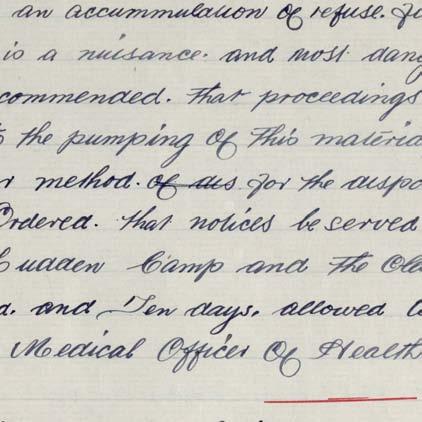 an accummulation of refuse. Fu
is a nuisance. and most dang
commended. that proceedings
the pumping of this materia
r method. of dis for the dispo
Ordered. that notices be served
Cudden Camp and the Ole
d. and Ten days. allowed
Medical Officer Of Health